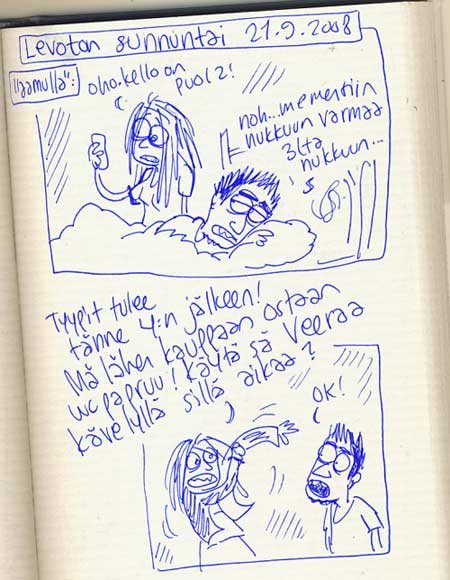 Levoton sunnuntai 21.9.2008
"aamulla":
oho. kello on
puol 2!
noh... me mentiin
nukkuun varmaa
3lta
nukkuun...
Tyypit tulee
tänne 4:n jälkeen!
Mä lähen kauppaan ostaan
wc papruu! Käytä sä Veeraa
kävelyllä sillä aikaa?
OK!